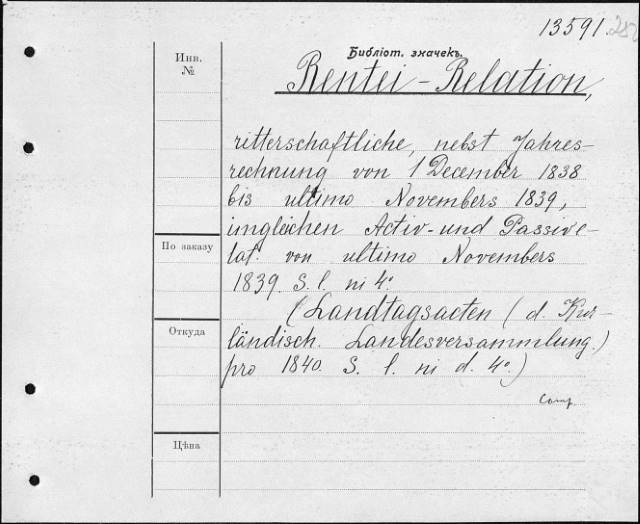 13591.
Библіот. значекъ.
Инв.
№
Rentei-Relation,
ritterschaftliche, nebst Jahres-
rechnung von 1 December 1838
bis ultimo Novembers 1839,
imgleichen Activ- und Passive-
lat. von ultimo Novembers
По заказу
1839. S. l. ni 4°.
(Landtagsacten (d. Kur-
Откуда
ländisch. Landesversammlung.)
pro 1840. S. l. ni d. 4°.)
Цѣна